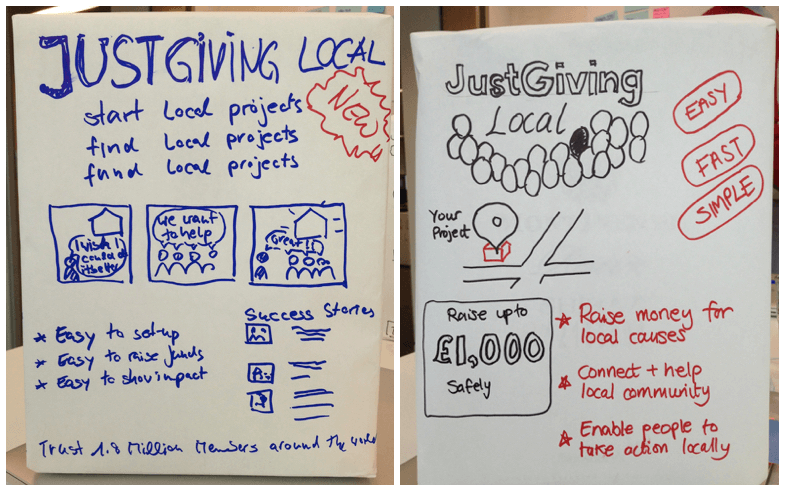 JUSTGIVING LOCAL
start Local projects
find Local projects
fund Local projects
NEW
I wish I
could do
it better
we want
to help
Great!!
* Easy to set-up
* Easy to raise funds
* Easy to show impact
Success Stories
Trust 1.8 Million Members around the world
JustGiving
Local
EASY
FAST
SIMPLE
Your
Project
Raise up to
£1,000
Safely
Raise money for
local causes
Connect + help
local community
Enable people to
take action locally